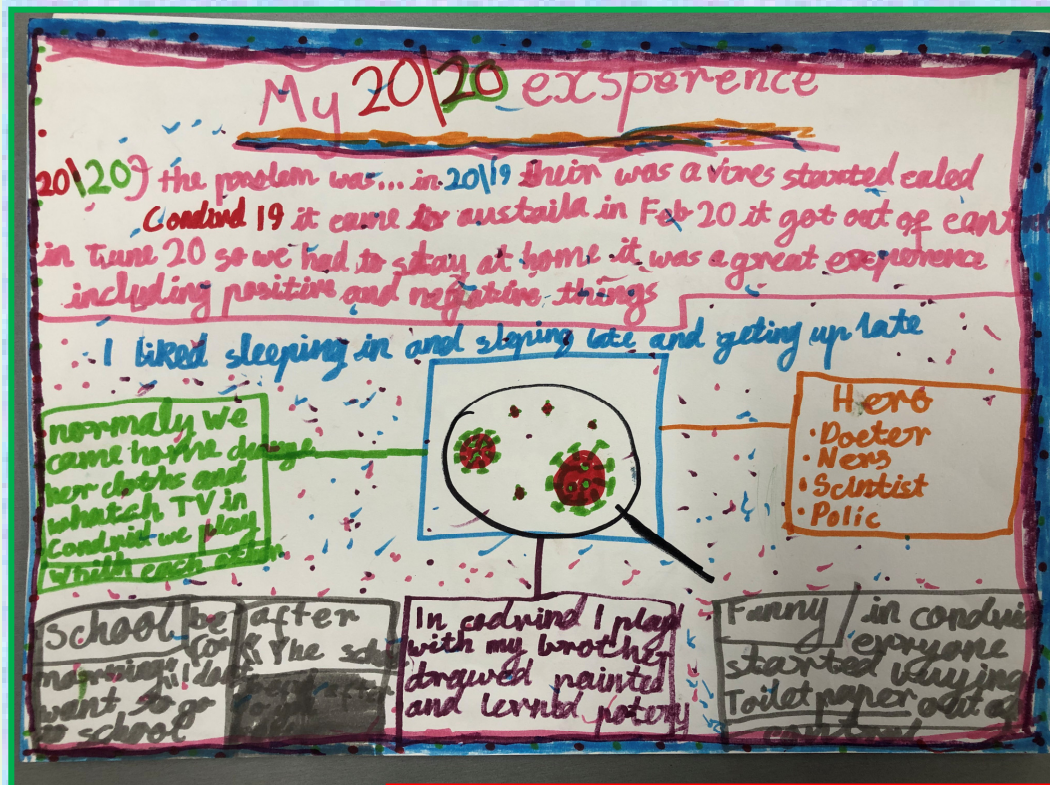 My 20\20 exsperence
20\20) the problem was... in 20\19 their was a vires started caled
Condvid 19 it came to austaila in Feb 20 it got out of cont
in June 20 so we had to sitay at home it was a great exsperence
including positive and negative things
I liked sleeping in and sleping late and geting up late
normaly we
came home change
her cloths and
whatch TV in
Condvid we play
whith each other
Hero
• Docter
• Ners
• Scintist
• Polic
School be for
morning "I don't
want to go
to school
after
" The sch
In codvind I play
with my brother
drawed painted
and lernd potery
Fanny in condvid
eryone
started buying
Toilet paper out of
control